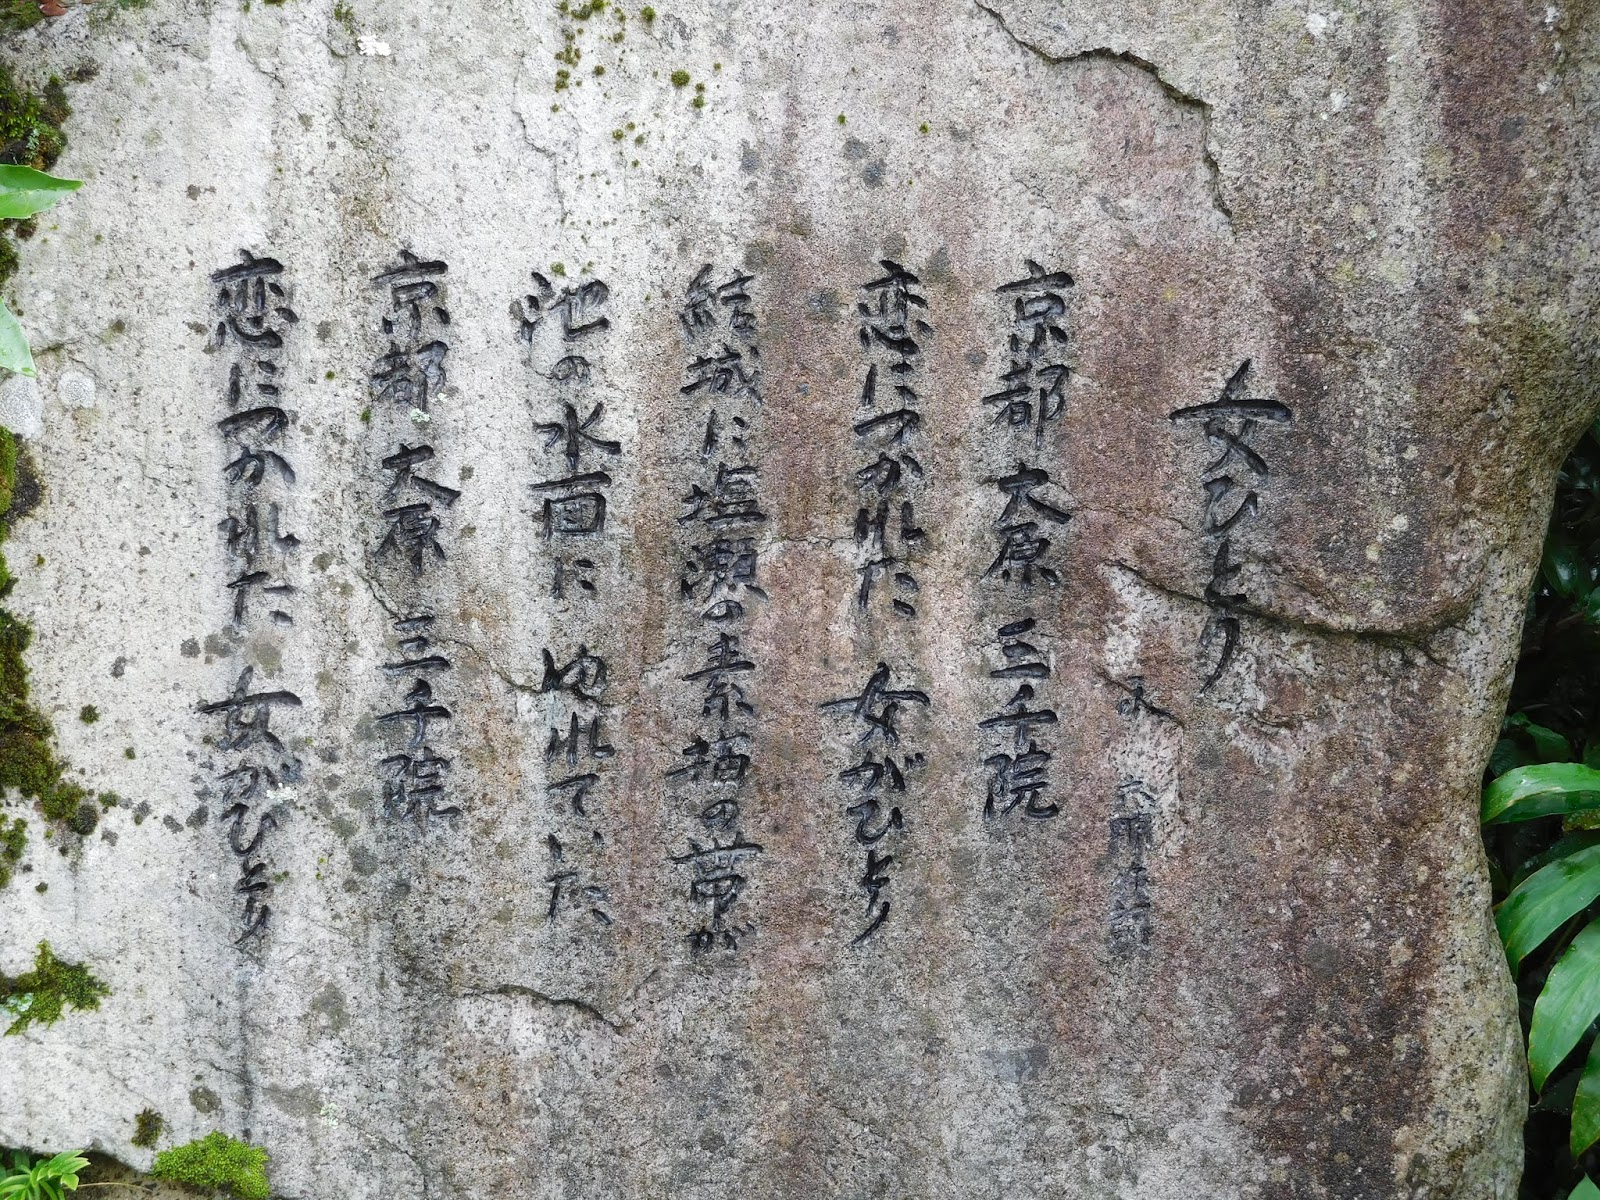 女ひとり
永 六輔 作詞
京都 大原 三千院
恋につかれた 女がひとり
結城に塩瀬の素描の帯が
池の水面に ゆれていた
京都 大原 三千院
恋につかれた 女がひとり